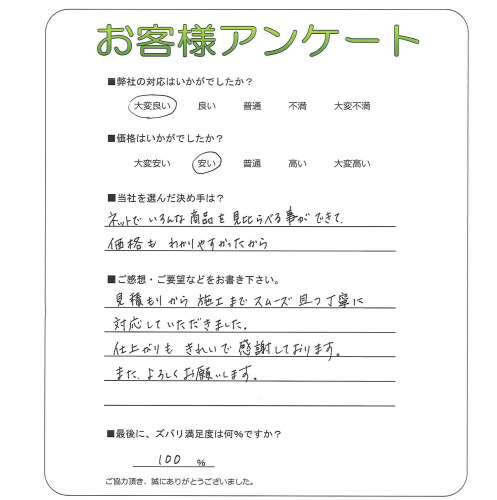 お客様アンケート
■弊社の対応はいかがでしたか？
大変良い 良い 普通 不満 大変不満
■価格はいかがでしたか？
大変安い 安い 普通 高い 大変高い
■当社を選んだ決め手は？
ネットでいろんな商品を見比らべる事ができて、
価格も わかりやすかったから
■ご感想・ご要望などをお書き下さい。
見積もりから 施工まで スムーズ 且つ丁寧に
対応していただきました。
仕上がりも きれいで 感謝しております。
また、よろしくお願いします。
■最後に、ズバリ満足度は何%ですか？
100 %
ご協力頂き、誠にありがとうございました。